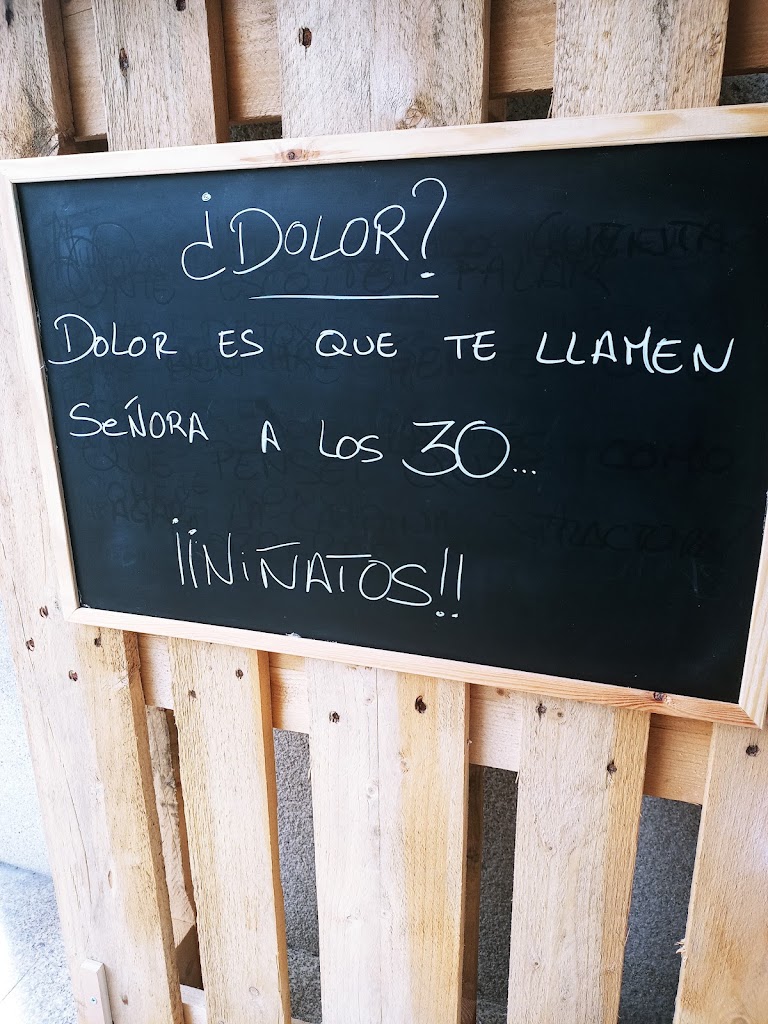 ¿DOLOR?
DOLOR ES QUE TE LLAMEN
SEÑORA A LOS 30...
¡¡NIÑATOS!!